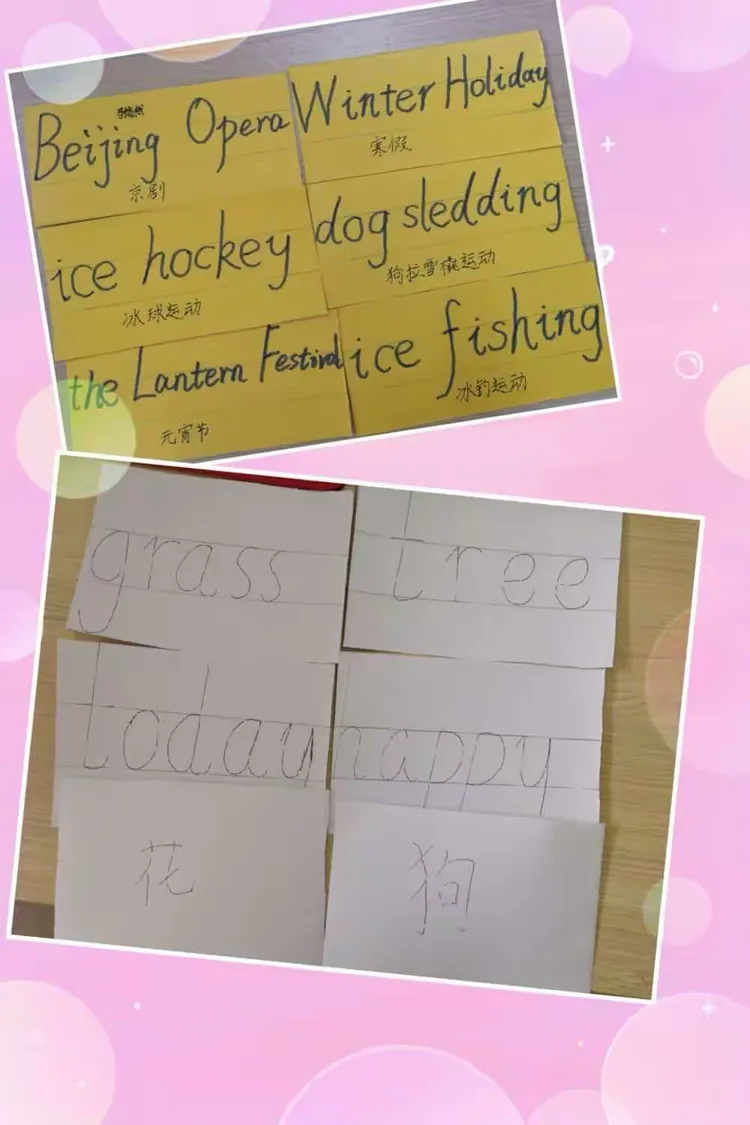 Beijing Opera
京剧
Winter Holiday
寒假
ice hockey
冰球运动
dog sledding
狗拉雪橇运动
the Lantern Festival
元宵节
ice fishing
冰钓运动
grass
tree
today
happy
花
狗